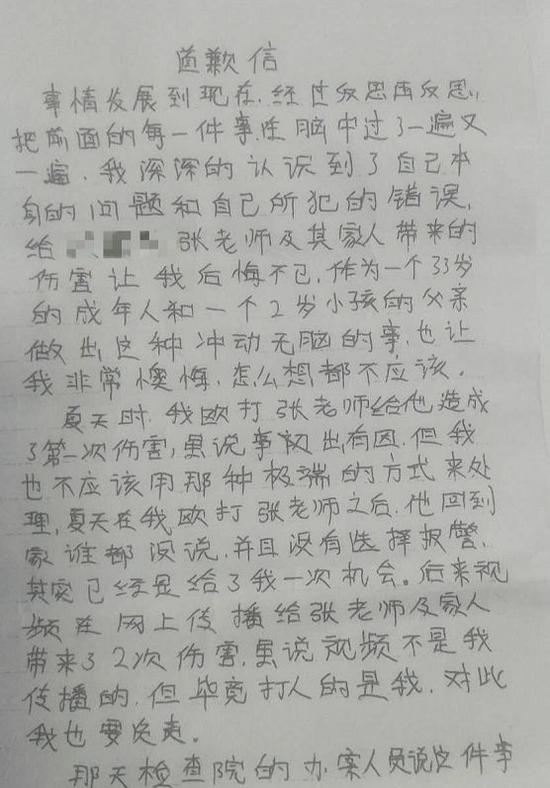 道歉信
事情发展到现在，经过反思再反思，
把前面的每一件事在脑中过了一遍又
一遍，我深深的认识到了自己本
身的问题和自己所犯的错误，
给 张老师及其家人带来的
伤害让我后悔不已，作为一个33岁
的成年人和一个2岁小孩的父亲
做出这种冲动无脑的事，也让
我非常懊悔，怎么想都不应该。
夏天时，我欧打张老师给他造成
了第一次伤害，虽说事初出有因，但我
也不应该用那种极端的方式来处
理，夏天在我欧打张老师之后，他回到
家谁都没说，并且没有选择报警，
其实已经是给了我一次机会。后来视
频在网上传播给张老师及家人
带来了2次伤害，虽说视频不是我
传播的，但毕竟打人的是我，对此
我也要负责。
那天检查院的办案人员说这件事